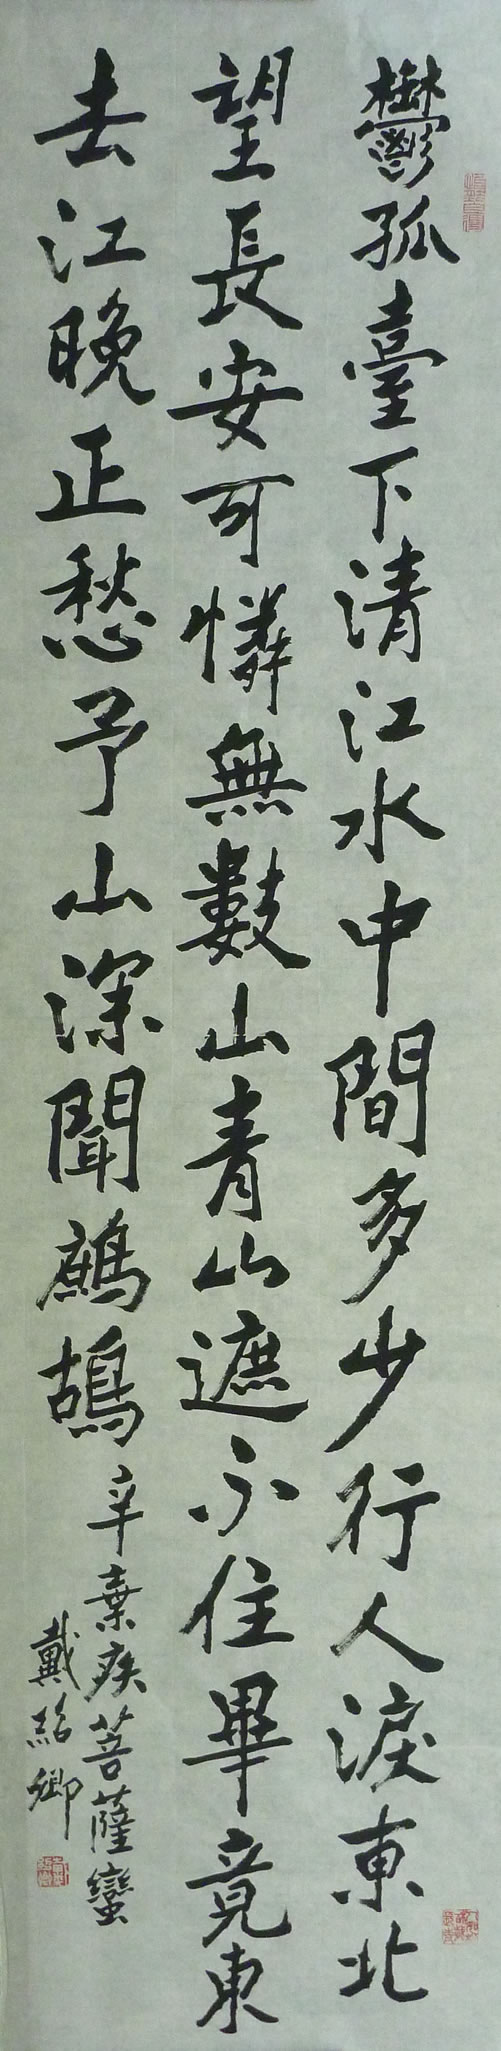 鬱孤臺下清江水中間多少行人淚東北
望長安可憐無數山青山遮不住畢竟東
去江晚正愁予山深聞鷓鴣辛棄疾菩薩蠻
戴紹卿